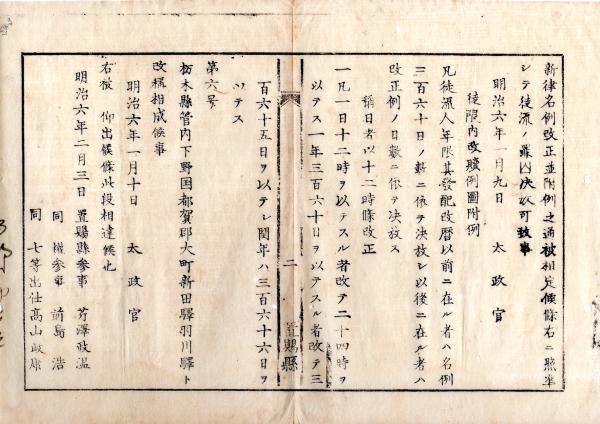 新律名例改正並附例之通被相定候條右ニ照準
シテ徒流ノ罪囚決放可致事
明治六年一月九日　太政官
徒限内改贖例圖附例
凡徒流人年限其發配改暦以前ニ在ル者ハ名例
三百六十日ノ數ニ依テ決放シ以後ニ在ル者ハ
改正例ノ日數ニ依テ決放ス
稱日者以十二時條改正
一凡一日十二時ヲ以テスル者改テ二十四時ヲ
以テス一年三百六十日ヲ以テスル者改テ三
二
置賜縣
百六十五日ヲ以テシ閏年ハ三百六十六日ヲ
以テス
第六号
栃木縣管内下野国都賀郡大町新田驛羽川驛ト
改稱相成候事
明治六年一月十日　太政官
右被　仰出候條此段相達候也
明治六年二月三日　置賜縣参事　芹澤政温
同　權参事　前島浩
同　七等出仕高山政康